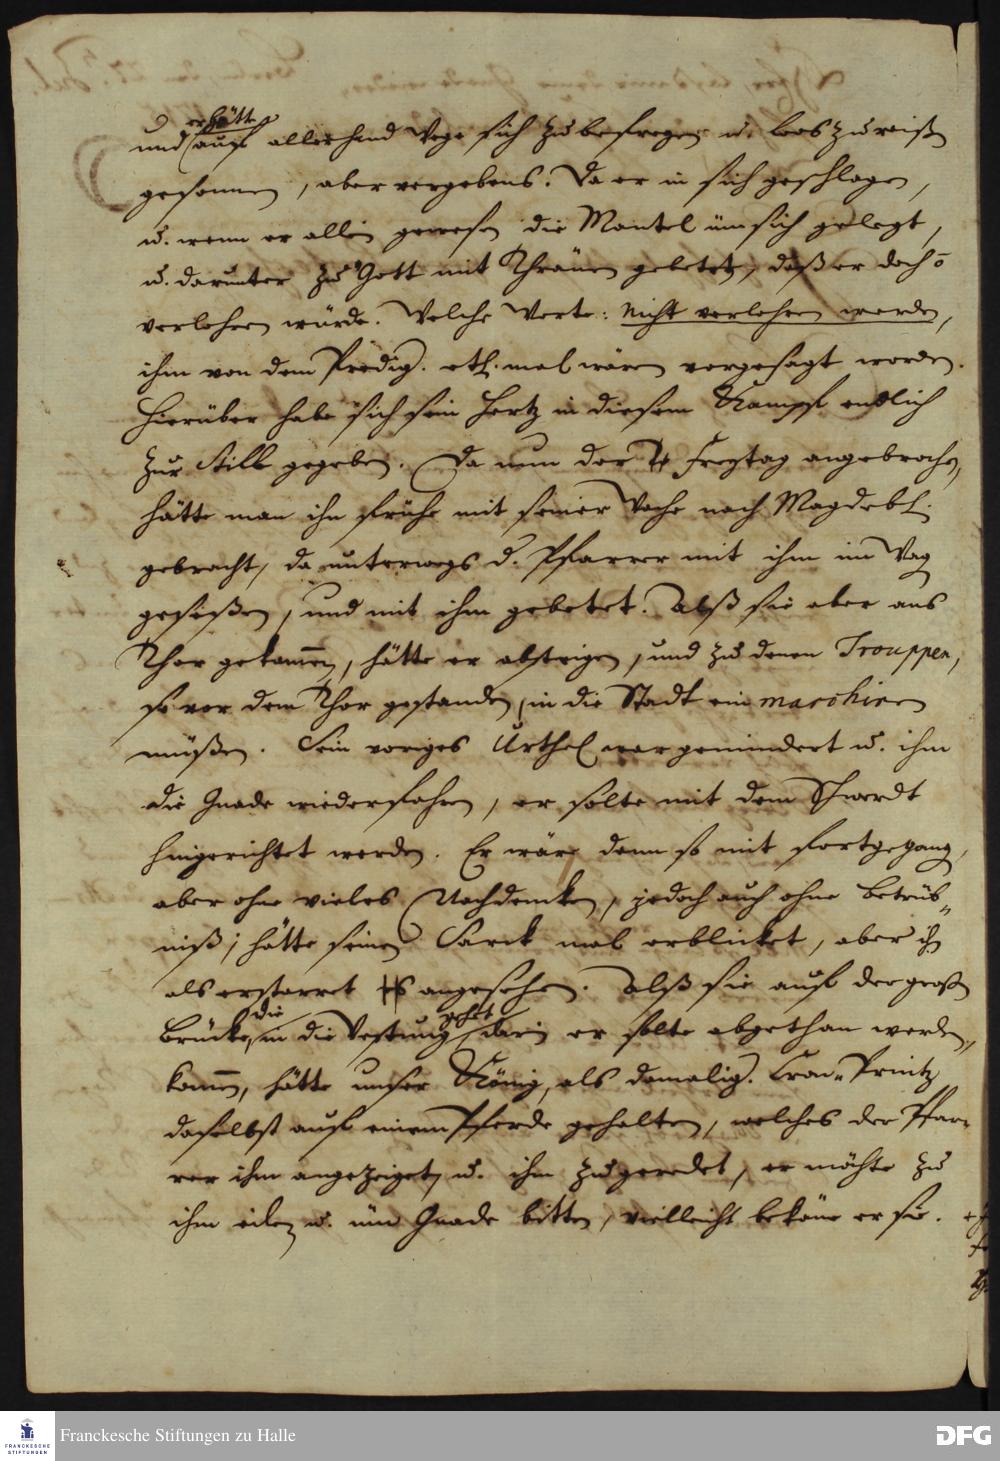 er hätte
und auf allerhand Wege sich zu befreyen u. loos zu reißen
gesonnen, aber vergebens. Da er in sich geschlagen,
u. wenn er allein gewesen die Mantel üm sich gelegt,
u. darunter zu Gott mit Thränen gebetet, daß er doch
verlohren würde. Welche Worte: nicht verlohren werden,
ihm von dem Predig. etl. mal wären vorgesagt worden.
Hierüber habe sich sein Hertz in diesem Kampf endlich
zur Stille gegeben. Da nun der Freytag angebrochen,
hätte man ihn frühe mit seiner Wache nach Magdeb.
gebracht, da unterwegs d. Pfarrer mit ihm im Wag
geseßen, und mit ihm gebetet. Alß sie aber ans
Thor gekommen, hätte er absteigen, und zu denen Trouppen,
so vor dem Thor gestanden, in die Stadt ein marchiren
müßen. Sein voriges Urthel war gemindert u. ihm
die Gnade wiederfahren, er solte mit dem Schwerdt
hingerichtet werden. Er wäre denn so mit fortgegang,
aber ohne vieles Nachdencken, jedoch auch ohne Betrüb-
niß, hätte seinen Sarck mal erblicket, aber ihn
als erstarret angesehen. Alß sie auf der großen
Brücke, die in die Vestung geht, darin er solte abgethan werden,
kommen, hätte unser König, als damalig. Cron-Printz
daselbst auf einem Pferde gehalten, welches der Pfar-
rer ihm angezeiget, u. ihm zugeredet, er möchte zu
ihm eilen u. üm Gnade bitten, vielleicht bekäme er sie.
Franckesche Stiftungen zu Halle
FRANCKESCHE
STIFTUNGEN
DFG